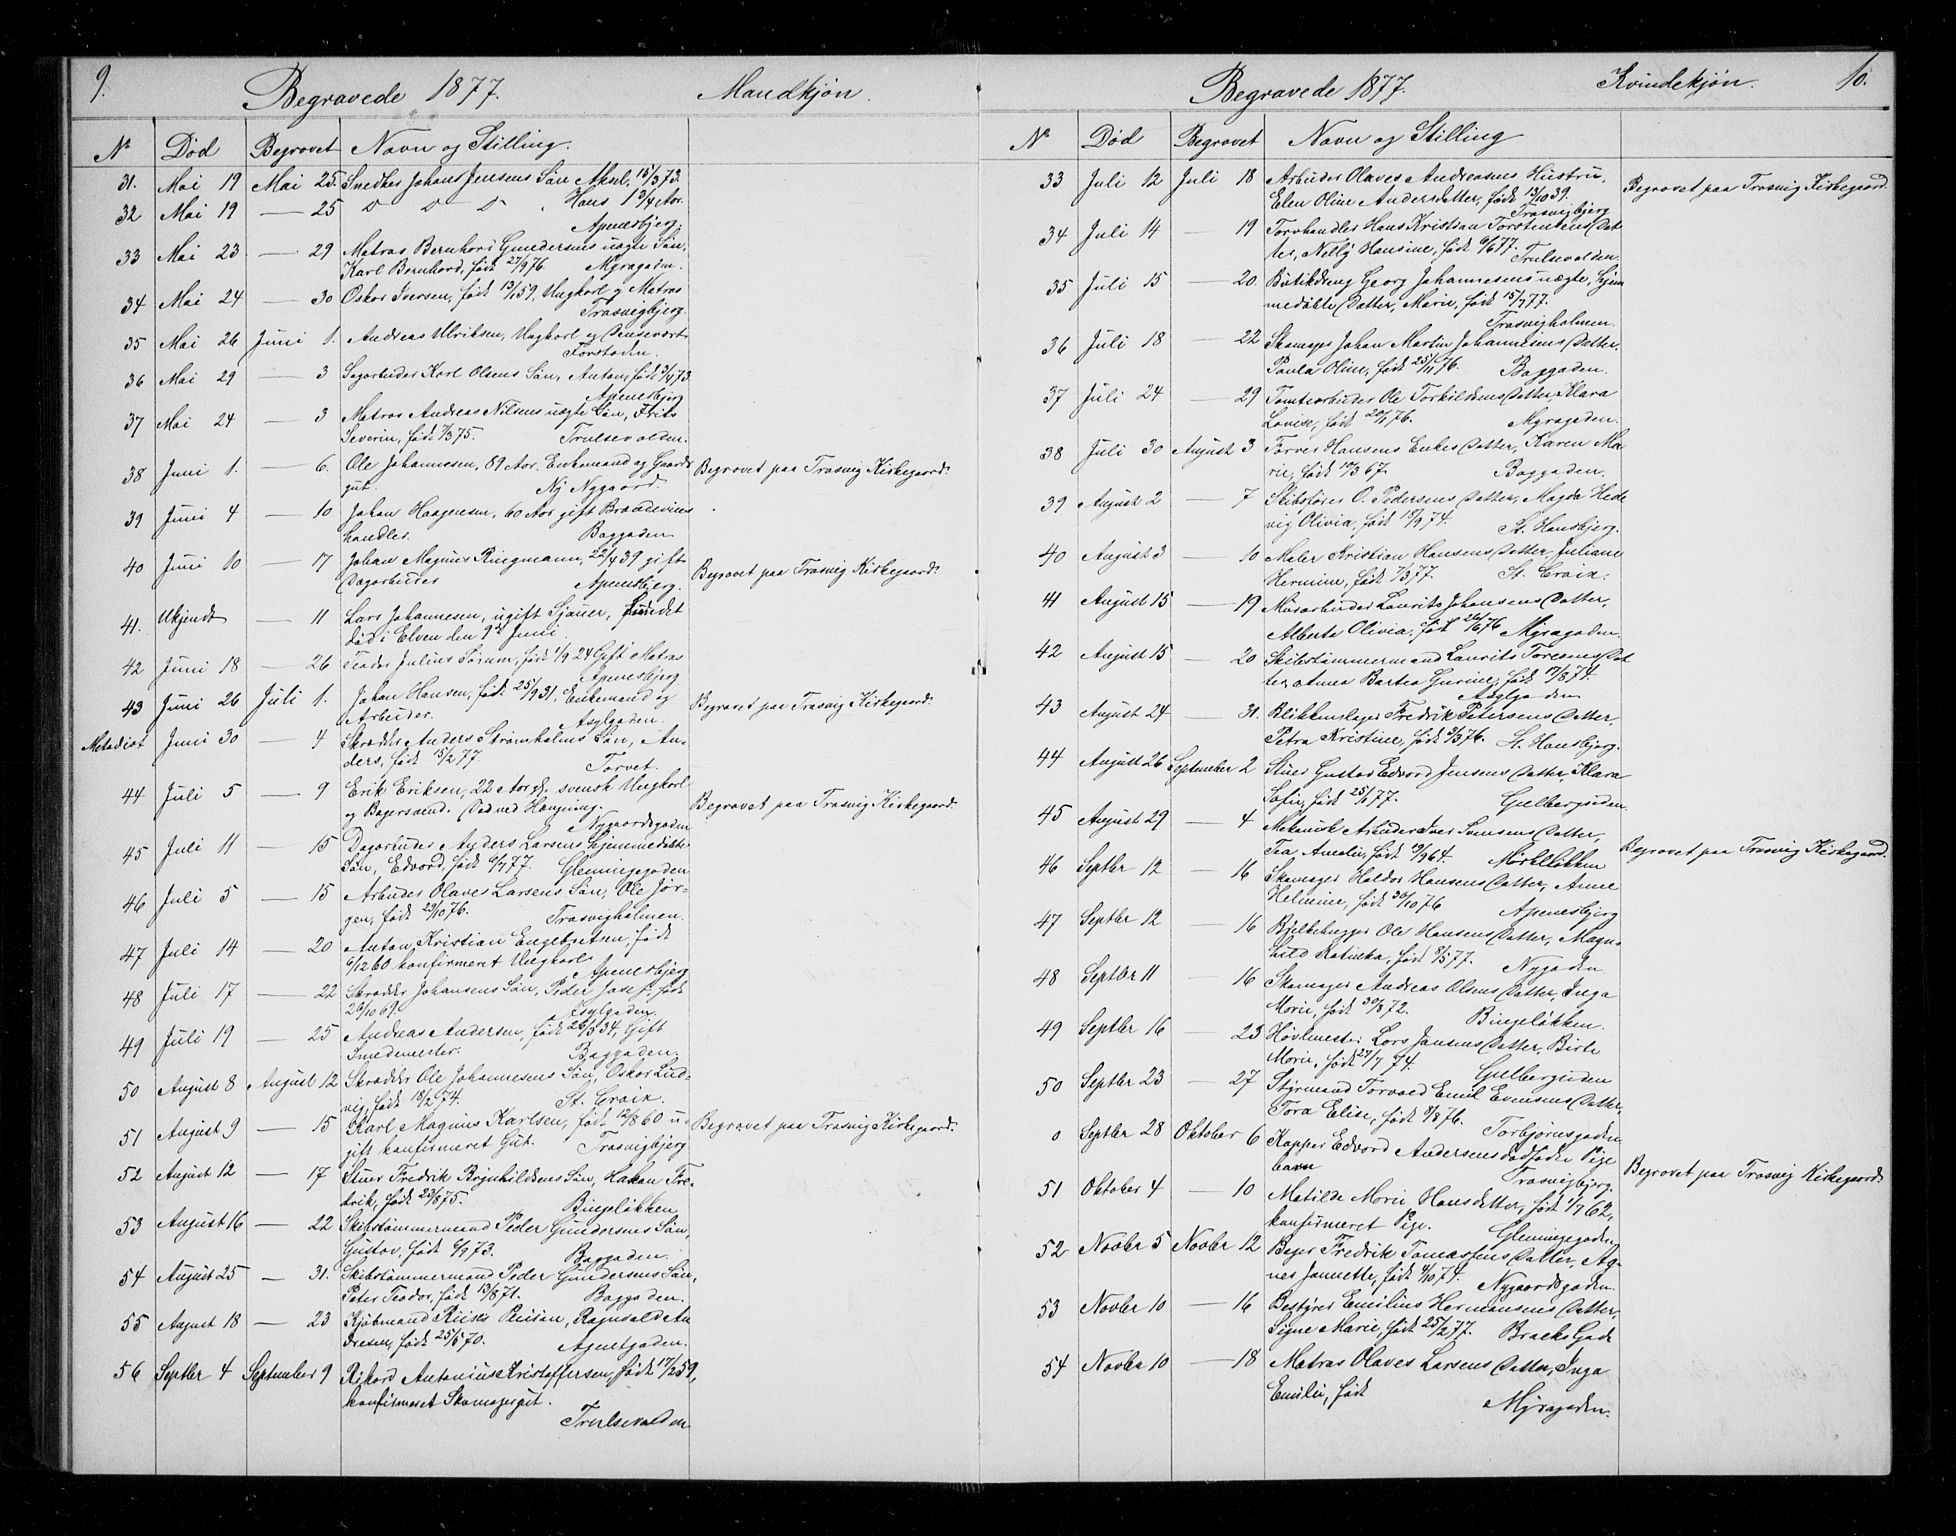 9.
Begravede 1877. Mandkjøn.
No Død Begravet Navn og Stilling.
31. Mai 19 Mai 25. Snedker Johans Jensens Søn Aksel, 15/3 73.
32 Mai 19 — 25 D D D . Hans 1 3/4 Aar.
Apenesbjerg
33 Mai 23 — 29 Matros Bernhard Gundersens uægte Søn,
Karl Bernhard, født 27/9 76. Myragaden.
34 Mai 24 — 30 Oskar Iversen, født 13/1 59, Ungkarl og Matros
Trosvigbjerg.
35 Mai 26 Juni 1. Andreas Ulriksen, Ungkarl og
Forstaden.
36 Mai 29 — 3 Sagarbeider Karl Olsens Søn, Anton, født 3/4 73
Apenesbjerg
37 Mai 24 — 3 Matros Andreas Nilsens uægte Søn, Frits
Severin, født 7/3 75. Trulsevolden.
38 Juni 1. — 6. Ole Johannesen, 89 Aar. Enkemand og Gaard-
gut. Ny Nygaard. Begravet paa Trosvig Kirkegaard.
39 Juni 4 — 10 Johan Haagensen, 60 Aar gift Brændeviins
handler. Baggaden
40 Juni 10 — 17 Johan Magnus Ringmann, 22/4 39 gift
Dagarbeider Apenesbjerg. Begravet paa Trosvig Kirkegaard.
41. Ukjendt — 11 Lars Johannesen, ugift Sjauer, fundet
død i Elven den 9de Juni
42 Juni 18 — 26 Teodor Julius Sørum, født 1/9 24 Gift Matros
Apenesbjerg
43 Juni 26 Juli 1. Johan Hansen, født 25/9 31. Enkemand og
Arbeider. Asylgaden. Begravet paa Trosvig Kirkegaard.
Metodist Juni 30 — 4 Skrædder Anders Strømholms Søn, An-
ders, født 15/2 77. Torvet.
44 Juli 5 — 9 Erik Eriksen, 22 Aar gl. svensk Ungkarl
og Bagersvend. Død ved Hængning.
Nygaardsgaden Begravet paa Trosvig Kirkegaard.
45 Juli 11 — 15 Dagarbeider Anders Larsens hjemmedøbte
Søn, Edvard, født 6/7 77. Glemmegaden
46 Juli 5 — 15 Arbeider Olaves Larsens Søn, Ole Jør-
gen, født 29/10 76. Trosvigholmen.
47 Juli 14 — 20 Anton Kristian Engebretsen, født
6/12 60 konfirmeret Ungkarl
Apenesbjerg
48 Juli 17 — 22 Skrædder Johansens Søn, Peder Josef, født
26/10 69. Asylgaden.
49 Juli 19 — 25 Andreas Andersen, født 26/3 34, Gift
Smedemester. Baggaden.
50 August 8 August 12 Skrædder Ole Johannesens Søn, Oskar Lud-
vig, født 18/2 74. St. Croix.
51 August 9 — 15 Karl Magnus Karlsen, født 12/8 60 u-
gift konfirmeret Gut. Trosvigbjerg Begravet paa Trosvig Kirkegaard.
52 August 12 — 17 Stuer Fredrik Brynhildsens Søn, Hakon Fre-
drik, født 23/8 75. Bingeløkken
53 August 16 — 22 Skibstømmermand Peder Gundersens Søn,
Gustav, født 6/9 73. Baggaden.
54 August 25 — 31. Skibstømmermand Peder Gundersens Søn,
Peter Teodor, født 13/8 71. Baggaden.
55 August 18 — 23 Kjøbmand Riises Pleisøn, Ragnvald An
dresen, født 25/6 70. Agentgaden.
56 Septbr 4 September 9 Rikard Antonius Kristoffersen, født 17/2 59,
konfirmeret Skomagergut.
Trulsevolden
10.
Begravede 1877. Kvindekjøn.
No Død Begravet Navn og Stilling
33 Juli 12 Juli 18 Arbeider Olaves Andreasens Hustru,
Elen Oline Andersdatter, født 13/10 39. Begravet paa Trosvig Kirkegaard.
Trosvigbjerg
34 Juli 14 — 19 Torvhandler Hans Kristian Torstensens Dat
ter, Nelly Hansine, født 6/6 77. Trulsevolden.
35 Juli 15 — 20. Butikdreng Georg Johannesens uægte, hjem
medøbte Datter, Marie, født 15/7 77.
Trosvigholmen.
36 Juli 18 — 22 Skomager Johan Martin Johannesens Datter,
Paula Oline, født 25/11 76. Baggaden.
37 Juli 24 — 29 Tomtearbeider Ole Torkildsens Datter, Klara
Lovise, født 20/1 76. Myragaden.
38 Juli 30 August 3 Farver Hansens Enkes Datter, Karen Ma-
rie, født 19/3 67. Baggaden.
39 August 2 — 7 Skibsfører O. Pedersens Datter, Magda Hed
vig Olivia, født 18/9 74. St. Hansbjerg.
40 August 3 — 10 Maler Kristian Hansens Datter, Juliane
Hermine, født 7/3 77. St. Croix.
41 August 15 — 19 Murarbeider Laurits Johansens Datter,
Alberta Olivia, født 26/6 76 Myragaden.
42 August 15 — 20 Skibstømmermand Laurits Toresens Dat
ter, Anna Bartea Gurine, født 17/8 74.
Asylgaden
43 August 24 — 31. Blikkenslager Fredrik Petersens Datter,
Petra Kristine, født 9/3 76. St. Hansbjerg.
44 August 26 September 2 Stuer Gustav Edvard Jensens Datter, Klara
Sofie, født 25/1 77. Gulbergsiden.
45 August 29 — 4 Mekanisk Arbeider Iver Svensens Datter,
Tea Amalie, født 19/9 64. Mørkeløkken Begravet paa Trosvig Kirkegaard.
46 Septbr 12 — 16 Skomager Haldor Hansens Datter, Anne
Helmine, født 30/10 76 Apenesbjerg
47 Septbr 12 — 16 Bjelkehugger Ole Hansens Datter, Magn-
hild Katinka, født 8/5 77. Nygaden
48 Septbr 11 — 16 Skomager Andreas Olsens Datter, Inga
Marie, født 30/8 72. Bingeløkken.
49 Septbr 16 — 23 Høvlmester Lars Jansens Datter, Birte
Marie, født 27/7 74. Gulbergsiden
50 Septbr 23 — 27 Styrmand Torvald Emil Evensens Datter,
Tora Elise, født 8/8 76. Torbjørnsgaden
0 Septbr 28 Oktober 6 Kapper Edvard Andersens dødfødte Pige
barn Trosvigbjerg. Begravet paa Trosvig Kirkegaard
51 Oktober 4 — 10 Matilde Marie Hansdatter, født 1/7 62,
konfirmeret Pige. Glemmegaden
52 Novbr 5 Novbr 12 Bager Fredrik Tomassens Datter, Ag-
nes Jannette, født 4/10 74. Nygaardsgaden.
53 Novbr 10 — 16 Bestyrer Emilius Hermansens Datter,
Signe Marie, født 25/2 77. Brocks Gade
54 Novbr 10 — 18 Matros Olaves Larsens Datter, Inga
Emilie, født Myragaden.